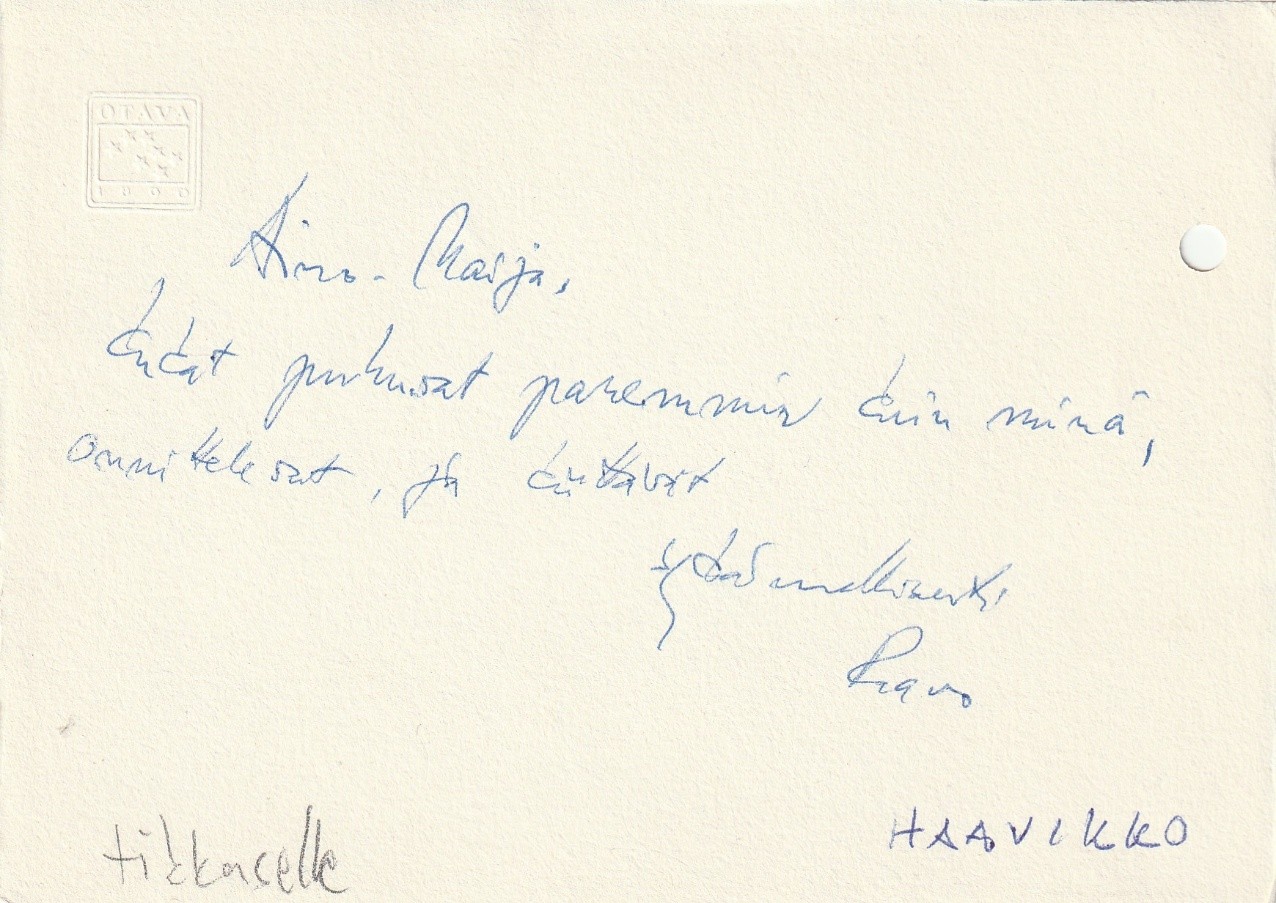 OTAVA
1890
Aino-Maija,
kukat puhuvat paremmin kuin minä,
onnittelevat, ja kiittävät
ystävällisesti
Paavo
HAAVIKKO
tikkaselle